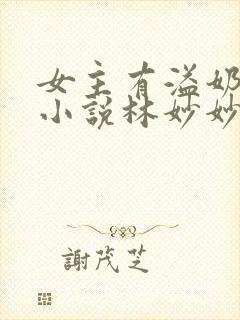 女主有溢奶
小说林妙妙
謝茂芝